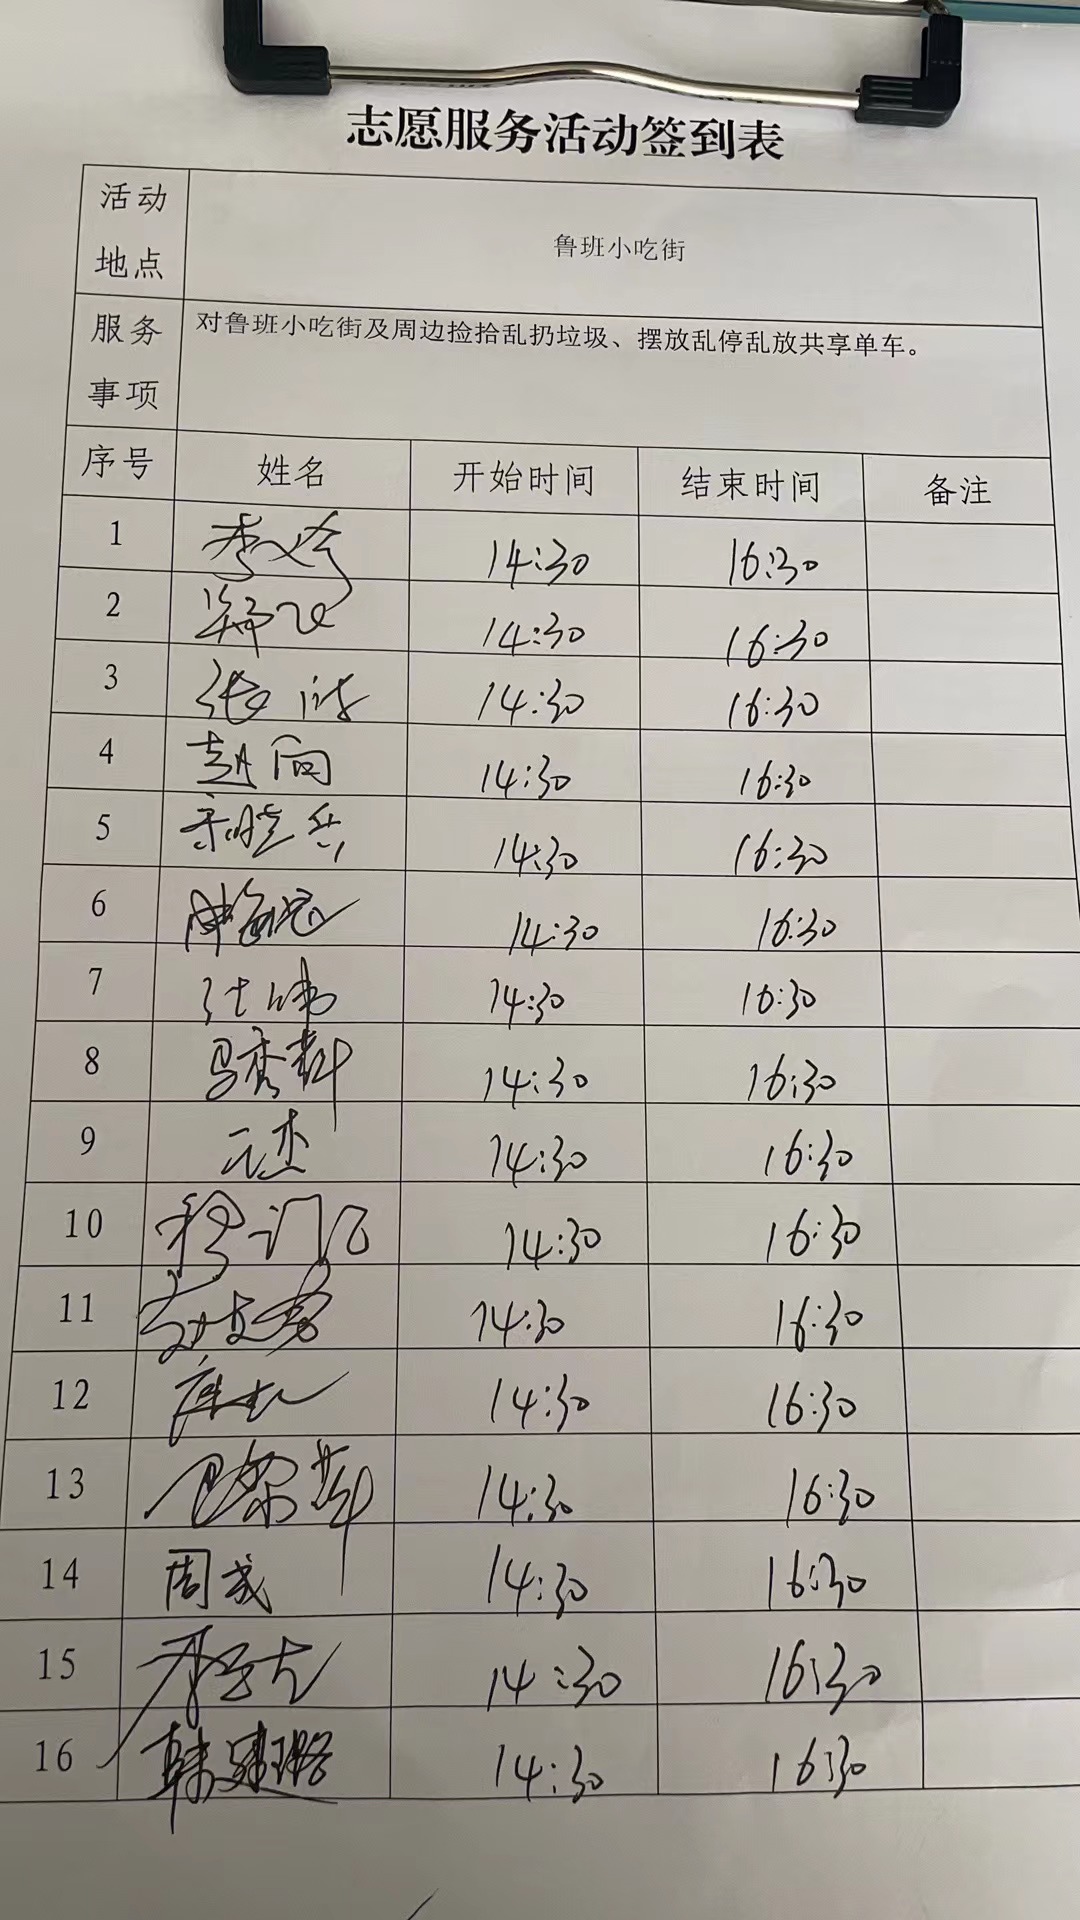 志愿服务活动签到表
活动地点 鲁班小吃街
服务事项 对鲁班小吃街及周边捡拾乱扔垃圾、摆放乱停乱放共享单车。
序号 姓名 开始时间 结束时间 备注
1 14:30 16:30
2 14:30 16:30
3 张 14:30 16:30
4 赵向 14:30 16:30
5 宋晓兵 14:30 16:30
6 14:30 16:30
7 14:30 16:30
8 马秀 14:30 16:30
9 元杰 14:30 16:30
10 14:30 16:30
11 14:30 16:30
12 14:30 16:30
13 14:30 16:30
14 周成 14:30 16:30
15 14:30 16:30
16 韩建璐 14:30 16:30